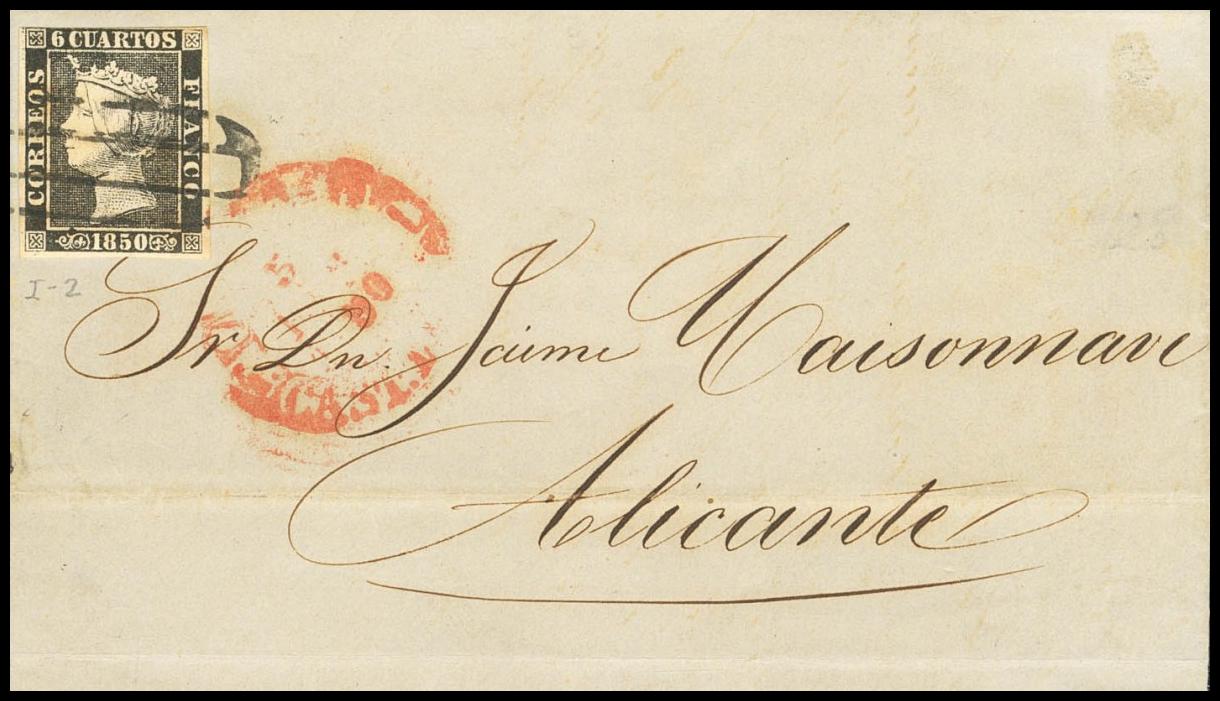 6 CUARTOS
CORREOS
FRANCO
1850
I-2
Sr Dn. Jaime Maisonnave
Alicante